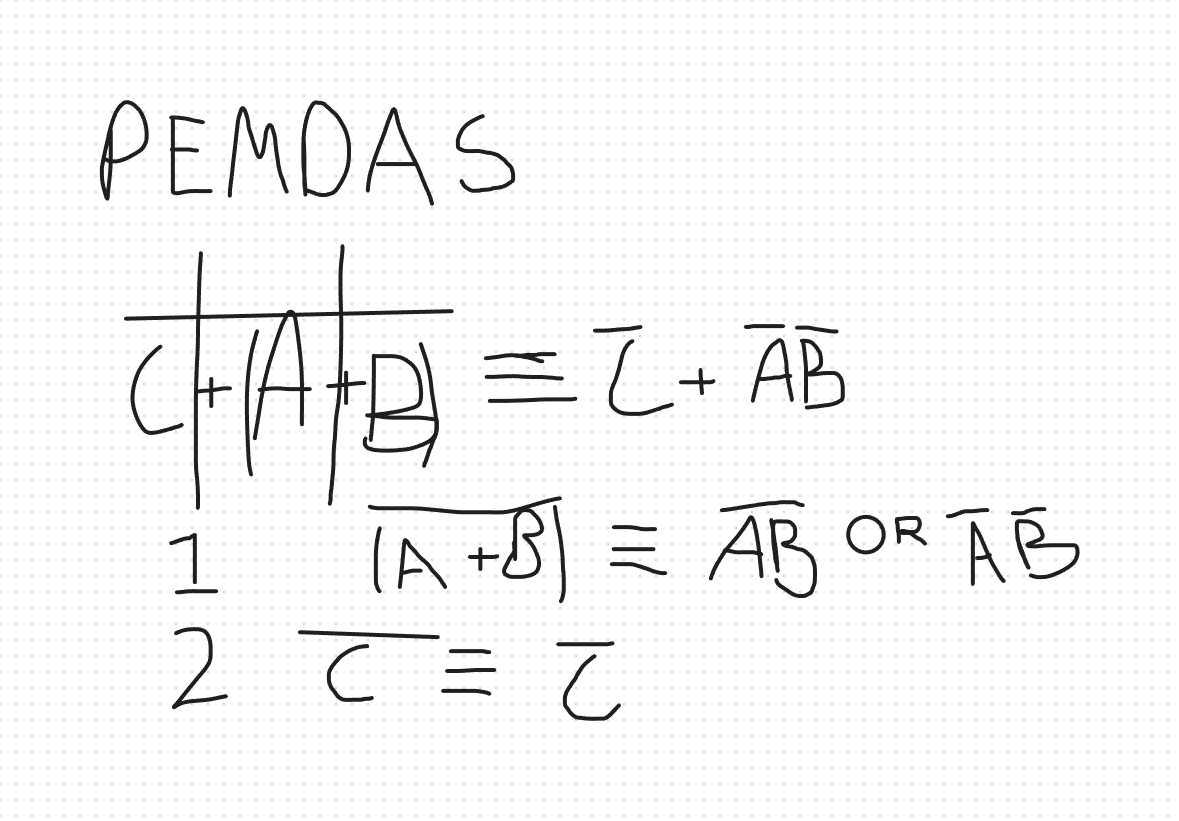 PEMDAS
C̅ ̅+̅ ̅(̅A̅ ̅+̅ ̅B̅)̅ ≡ C̅ + A̅ B̅
1 (̅A̅ ̅+̅ ̅B̅)̅ ≡ A̅B̅ OR A̅ B̅
2 C̅ ≡ C̅